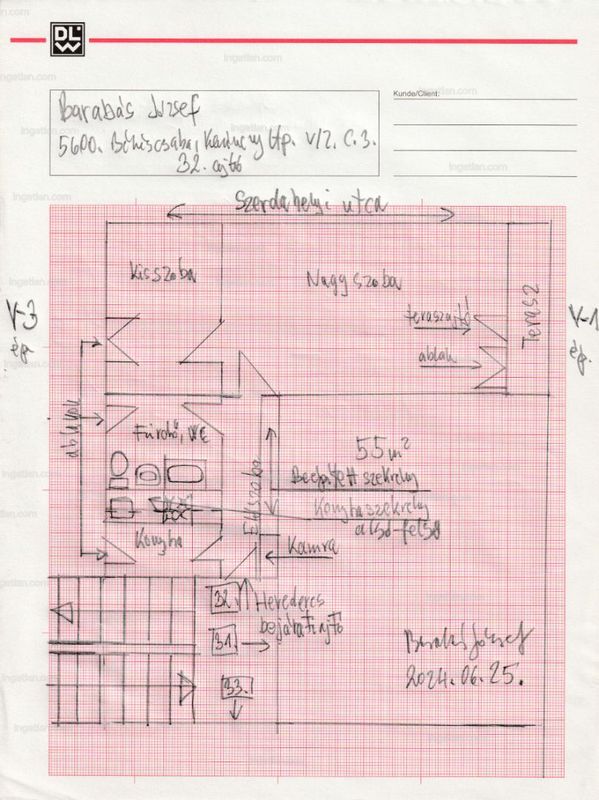 DLW
Kunde/Client:
Barabás József
5600. Békéscsaba, Kazinczy ltp. V/2. C. 3.
32. ajtó
Szerdahelyi utca
Kisszoba
Nagyszoba
Terasz
V-3
ép.
V-1
ép.
teraszajtó
ablak
ablakok
Fürdő, WC
55 m²
Előszoba
Beépített szekrény
Konyhaszekrény
alsó-felső
Konyha
Kamra
32.
Hevederes
bejárati ajtó
31.
33.
Barabás József
2024.06.25.
ingatlan.com